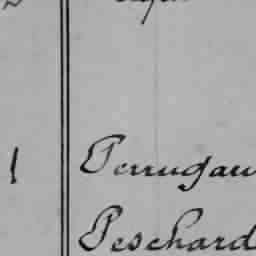 1 Perrugau
Peschard